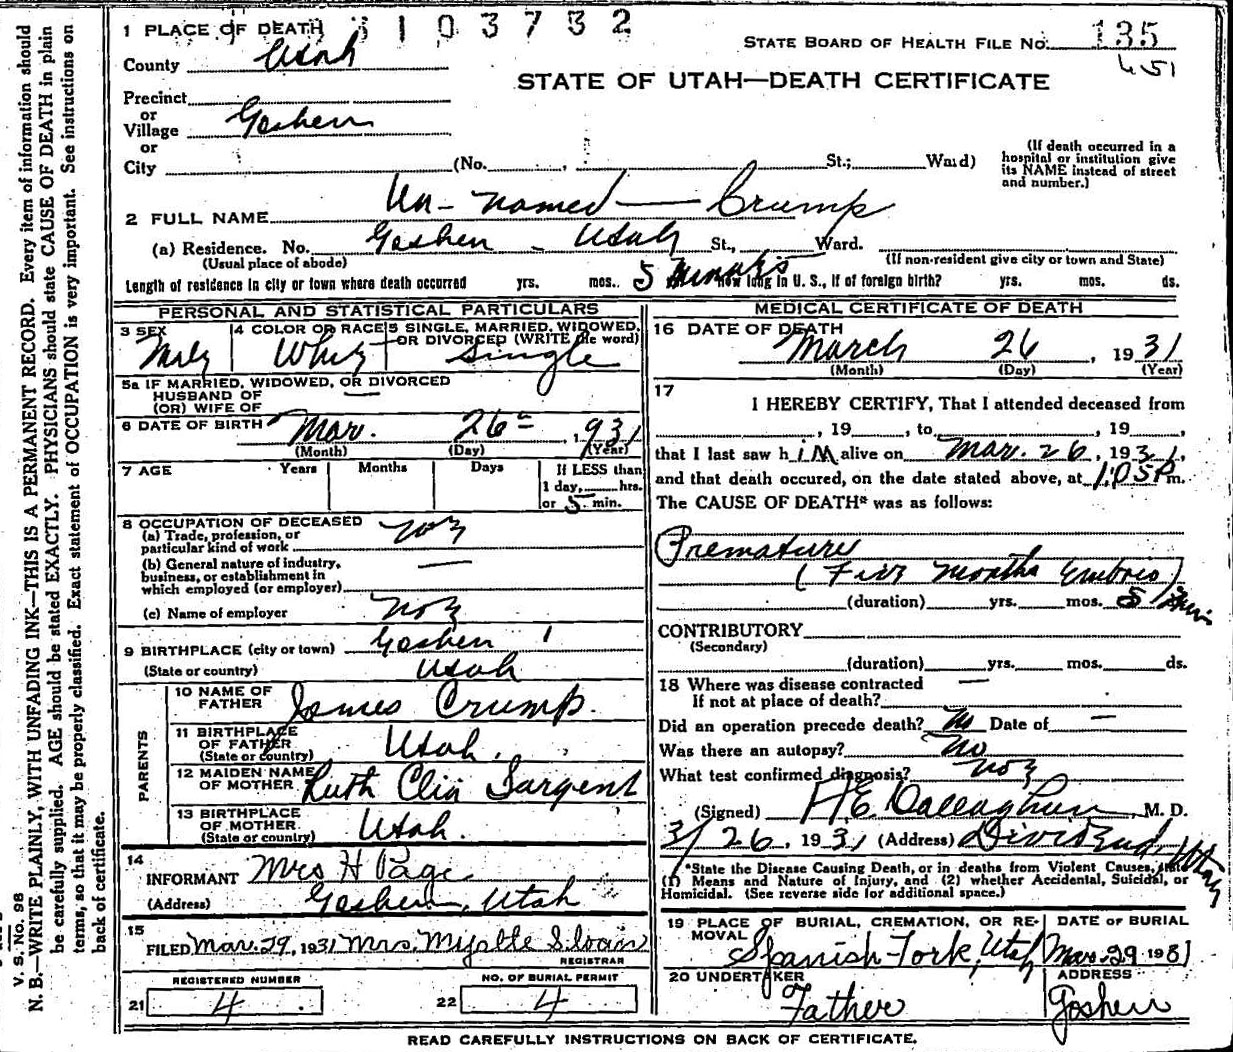 3103732
1 PLACE OF DEATH
STATE BOARD OF HEALTH FILE No. 135
451
County Utah
STATE OF UTAH—DEATH CERTIFICATE
Precinct
or
Village Goshen
or
City (No. , St.; Ward)
(If death occurred in a
hospital or institution give
its NAME instead of street
and number.)
2 FULL NAME Un-named — Crump
(a) Residence. No. Goshen - Utah St., Ward.
(Usual place of abode)
(If non-resident give city or town and State)
Length of residence in city or town where death occurred yrs. mos. 5 minutes How long in U. S., if of foreign birth? yrs. mos. ds.
PERSONAL AND STATISTICAL PARTICULARS
3 SEX Male
4 COLOR OR RACE White
5 SINGLE, MARRIED, WIDOWED,
OR DIVORCED (WRITE the word)
Single
5a IF MARRIED, WIDOWED, OR DIVORCED
HUSBAND OF
(OR) WIFE OF —
6 DATE OF BIRTH Mar. 26 , 1931
(Month) (Day) (Year)
7 AGE Years Months Days If LESS than
1 day, hrs.
or 5 min.
8 OCCUPATION OF DECEASED
(a) Trade, profession, or
particular kind of work
(b) General nature of industry,
business, or establishment in
which employed (or employer) —
(c) Name of employer
9 BIRTHPLACE (city or town) Goshen
(State or country) Utah
PARENTS
10 NAME OF
FATHER James Crump.
11 BIRTHPLACE
OF FATHER
(State or country) Utah.
12 MAIDEN NAME
OF MOTHER Ruth Sargent
13 BIRTHPLACE
OF MOTHER
(State or country) Utah.
14
INFORMANT Mrs H Page
(Address) Goshen, Utah
15
FILED Mar. 29, 1931 Mrs. Myrtle Sloan
REGISTRAR
REGISTERED NUMBER
21 4
NO. OF BURIAL PERMIT
22 4
MEDICAL CERTIFICATE OF DEATH
16 DATE OF DEATH
March 26 , 1931
(Month) (Day) (Year)
17
I HEREBY CERTIFY, That I attended deceased from
, 19 , to , 19 ,
that I last saw him alive on Mar. 26, 1931,
and that death occured, on the date stated above, at 1:05 P m.
The CAUSE OF DEATH* was as follows:
Premature
(Five months Embrio)
(duration) yrs. mos. 5 Min
CONTRIBUTORY
(Secondary)
(duration) yrs. mos. ds.
18 Where was disease contracted
If not at place of death? —
Did an operation precede death? No Date of —
Was there an autopsy? No
What test confirmed diagnosis?
(Signed) H.E. Dalleaghan, M. D.
3/26, 1931 (Address) Dividend, Utah
*State the Disease Causing Death, or in deaths from Violent Causes, state
(1) Means and Nature of Injury, and (2) whether Accidental, Suicidal, or
Homicidal. (See reverse side for additional space.)
19 PLACE OF BURIAL, CREMATION, OR RE-
MOVAL
Spanish Fork, Utah
DATE OF BURIAL
Mar. 29 1931
20 UNDERTAKER
Father
ADDRESS
Goshen
READ CAREFULLY INSTRUCTIONS ON BACK OF CERTIFICATE.
V. S. No. 98
N. B.—WRITE PLAINLY, WITH UNFADING INK—THIS IS A PERMANENT RECORD. Every item of information should
be carefully supplied. AGE should be stated EXACTLY. PHYSICIANS should state CAUSE OF DEATH in plain
terms, so that it may be properly classified. Exact statement of OCCUPATION is very important. See instructions on
back of certificate.